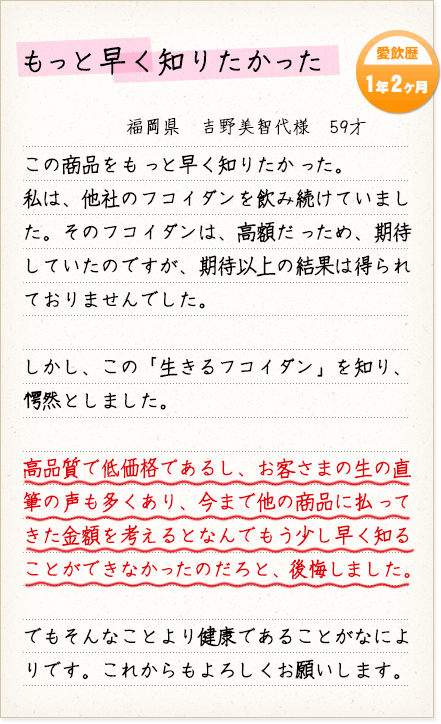 もっと早く知りたかった
愛飲歴
1年2ヶ月
福岡県　吉野美智代様　59才
この商品をもっと早く知りたかった。
私は、他社のフコイダンを飲み続けていまし
た。そのフコイダンは、高額だったため、期待
していたのですが、期待以上の結果は得られ
ておりませんでした。
しかし、この「生きるフコイダン」を知り、
愕然としました。
高品質で低価格であるし、お客さまの生の直
筆の声も多くあり、今まで他の商品に払って
きた金額を考えるとなんでもう少し早く知る
ことができなかったのだろと、後悔しました。
でもそんなことより健康であることがなによ
りです。これからもよろしくお願いします。